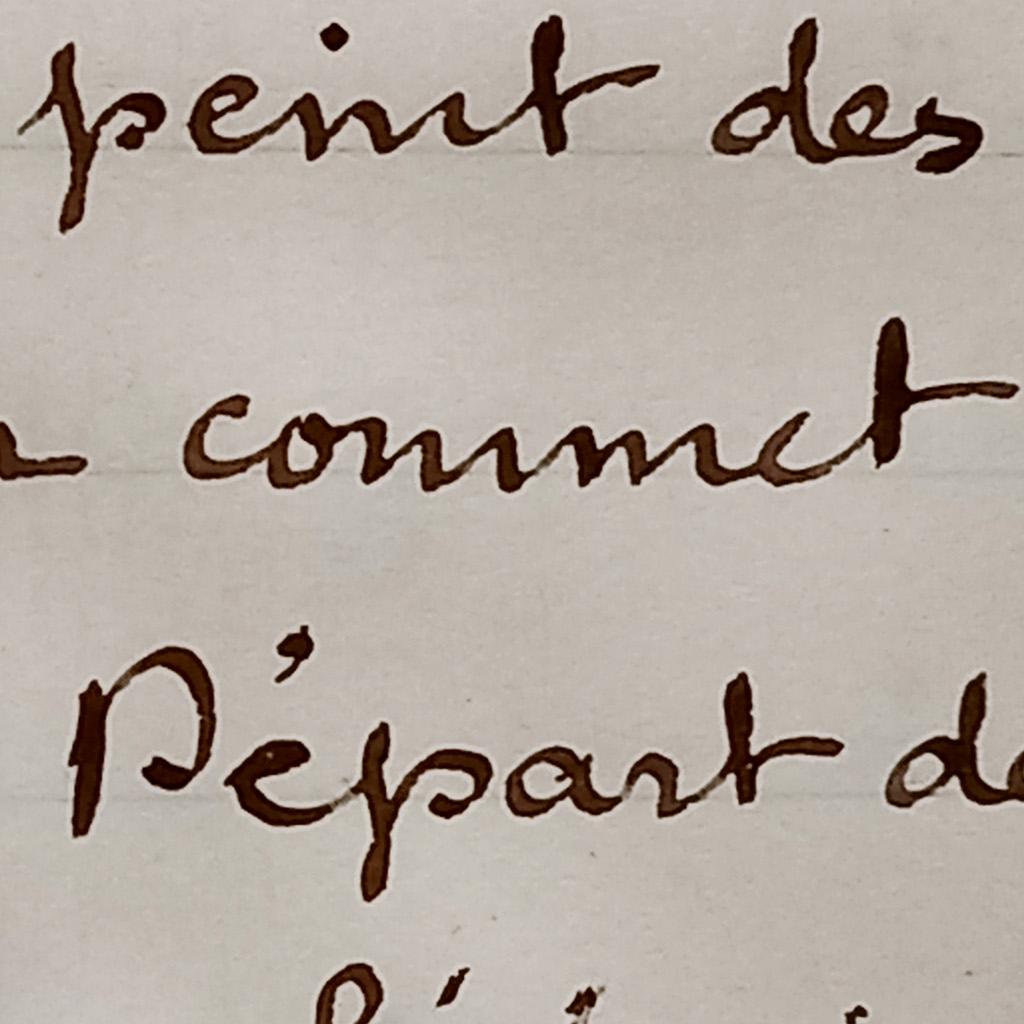 peint des
commet
Départ de